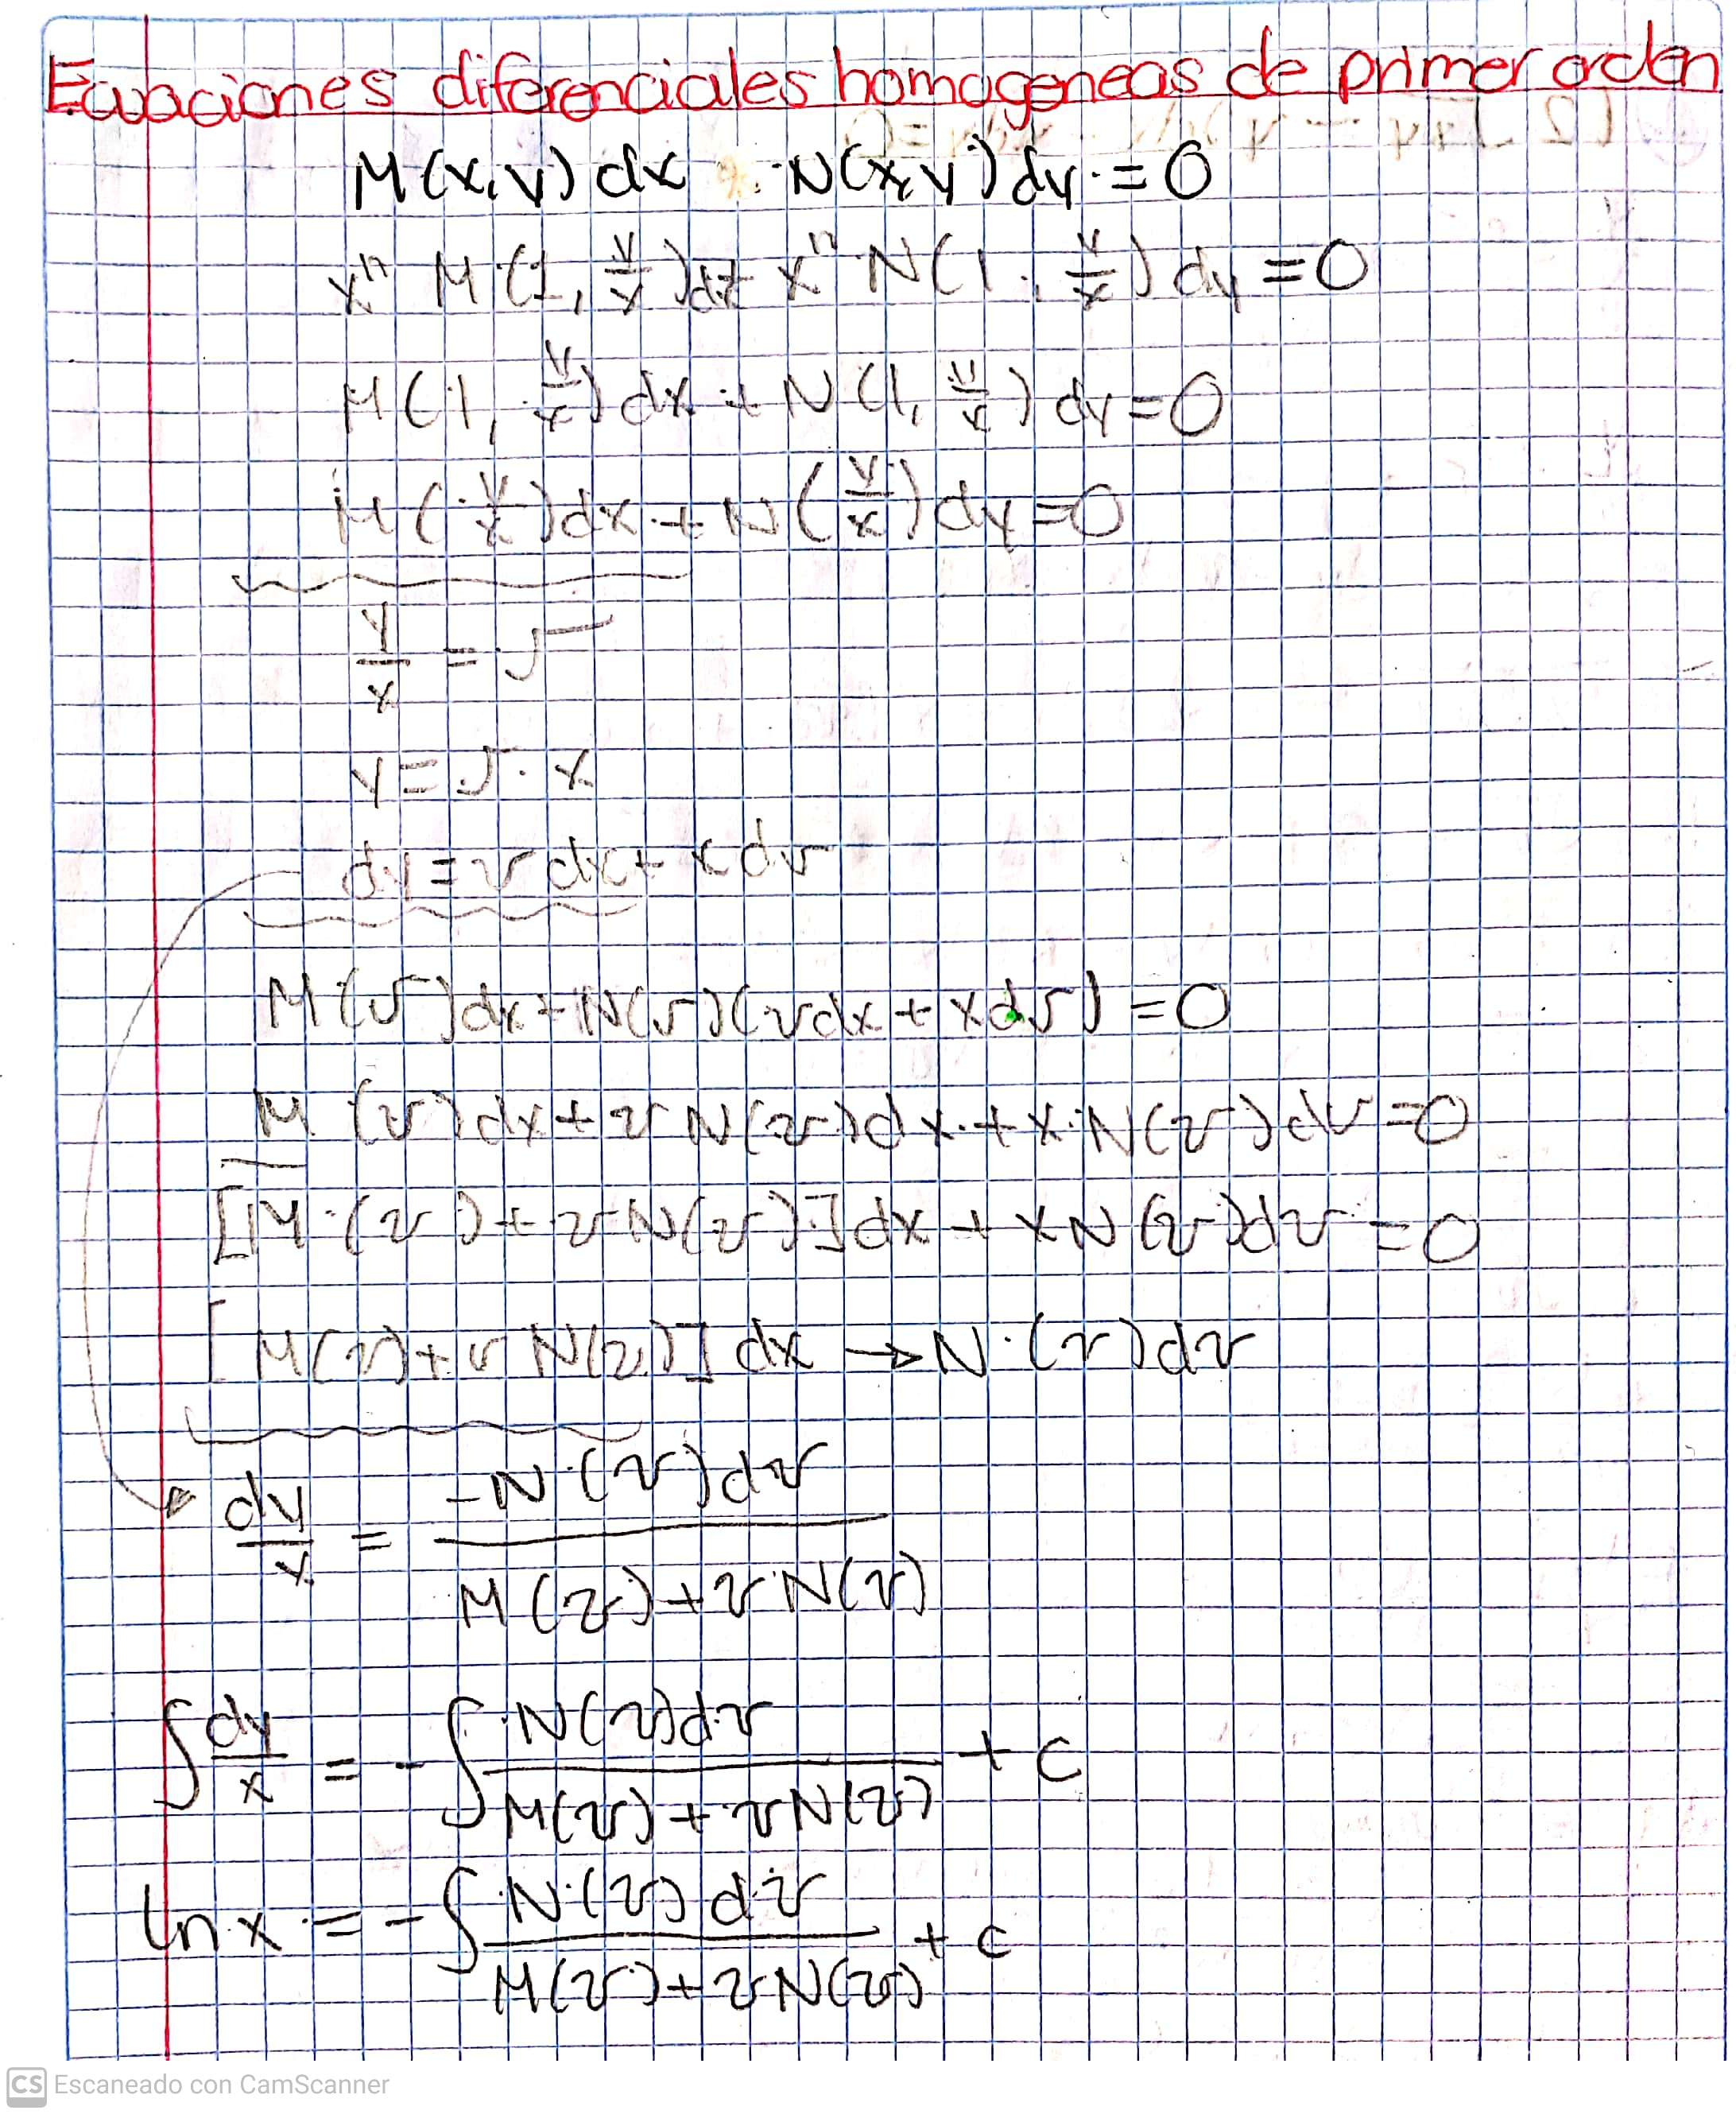 Ecuaciones diferenciales homogeneas de primer orden
M(x,y) dx N(x,y) dy = 0
x^n M(1, y/x) dx x^n N(1, y/x) dy = 0
M(1, y/x) dx + N(1, y/x) dy = 0
M(y/x) dx + N(y/x) dy = 0
y/x = v
y = v · x
dy = v dx + x dv
M(v) dx + N(v)(v dx + x dv) = 0
M (v) dx + v N(v) dx + x · N(v) dv = 0
[M · (v) + v N(v)] dx + x N (v) dv = 0
[M(v) + v N(v)] dx → N · (v) dv
dy/x = -N · (v) dv / M(v) + v N(v)
∫ dy/x = - ∫ N(v) dv / M(v) + v N(v) + c
ln x = - ∫ N · (v) dv / M(v) + v N(v) + c
CS Escaneado con CamScanner